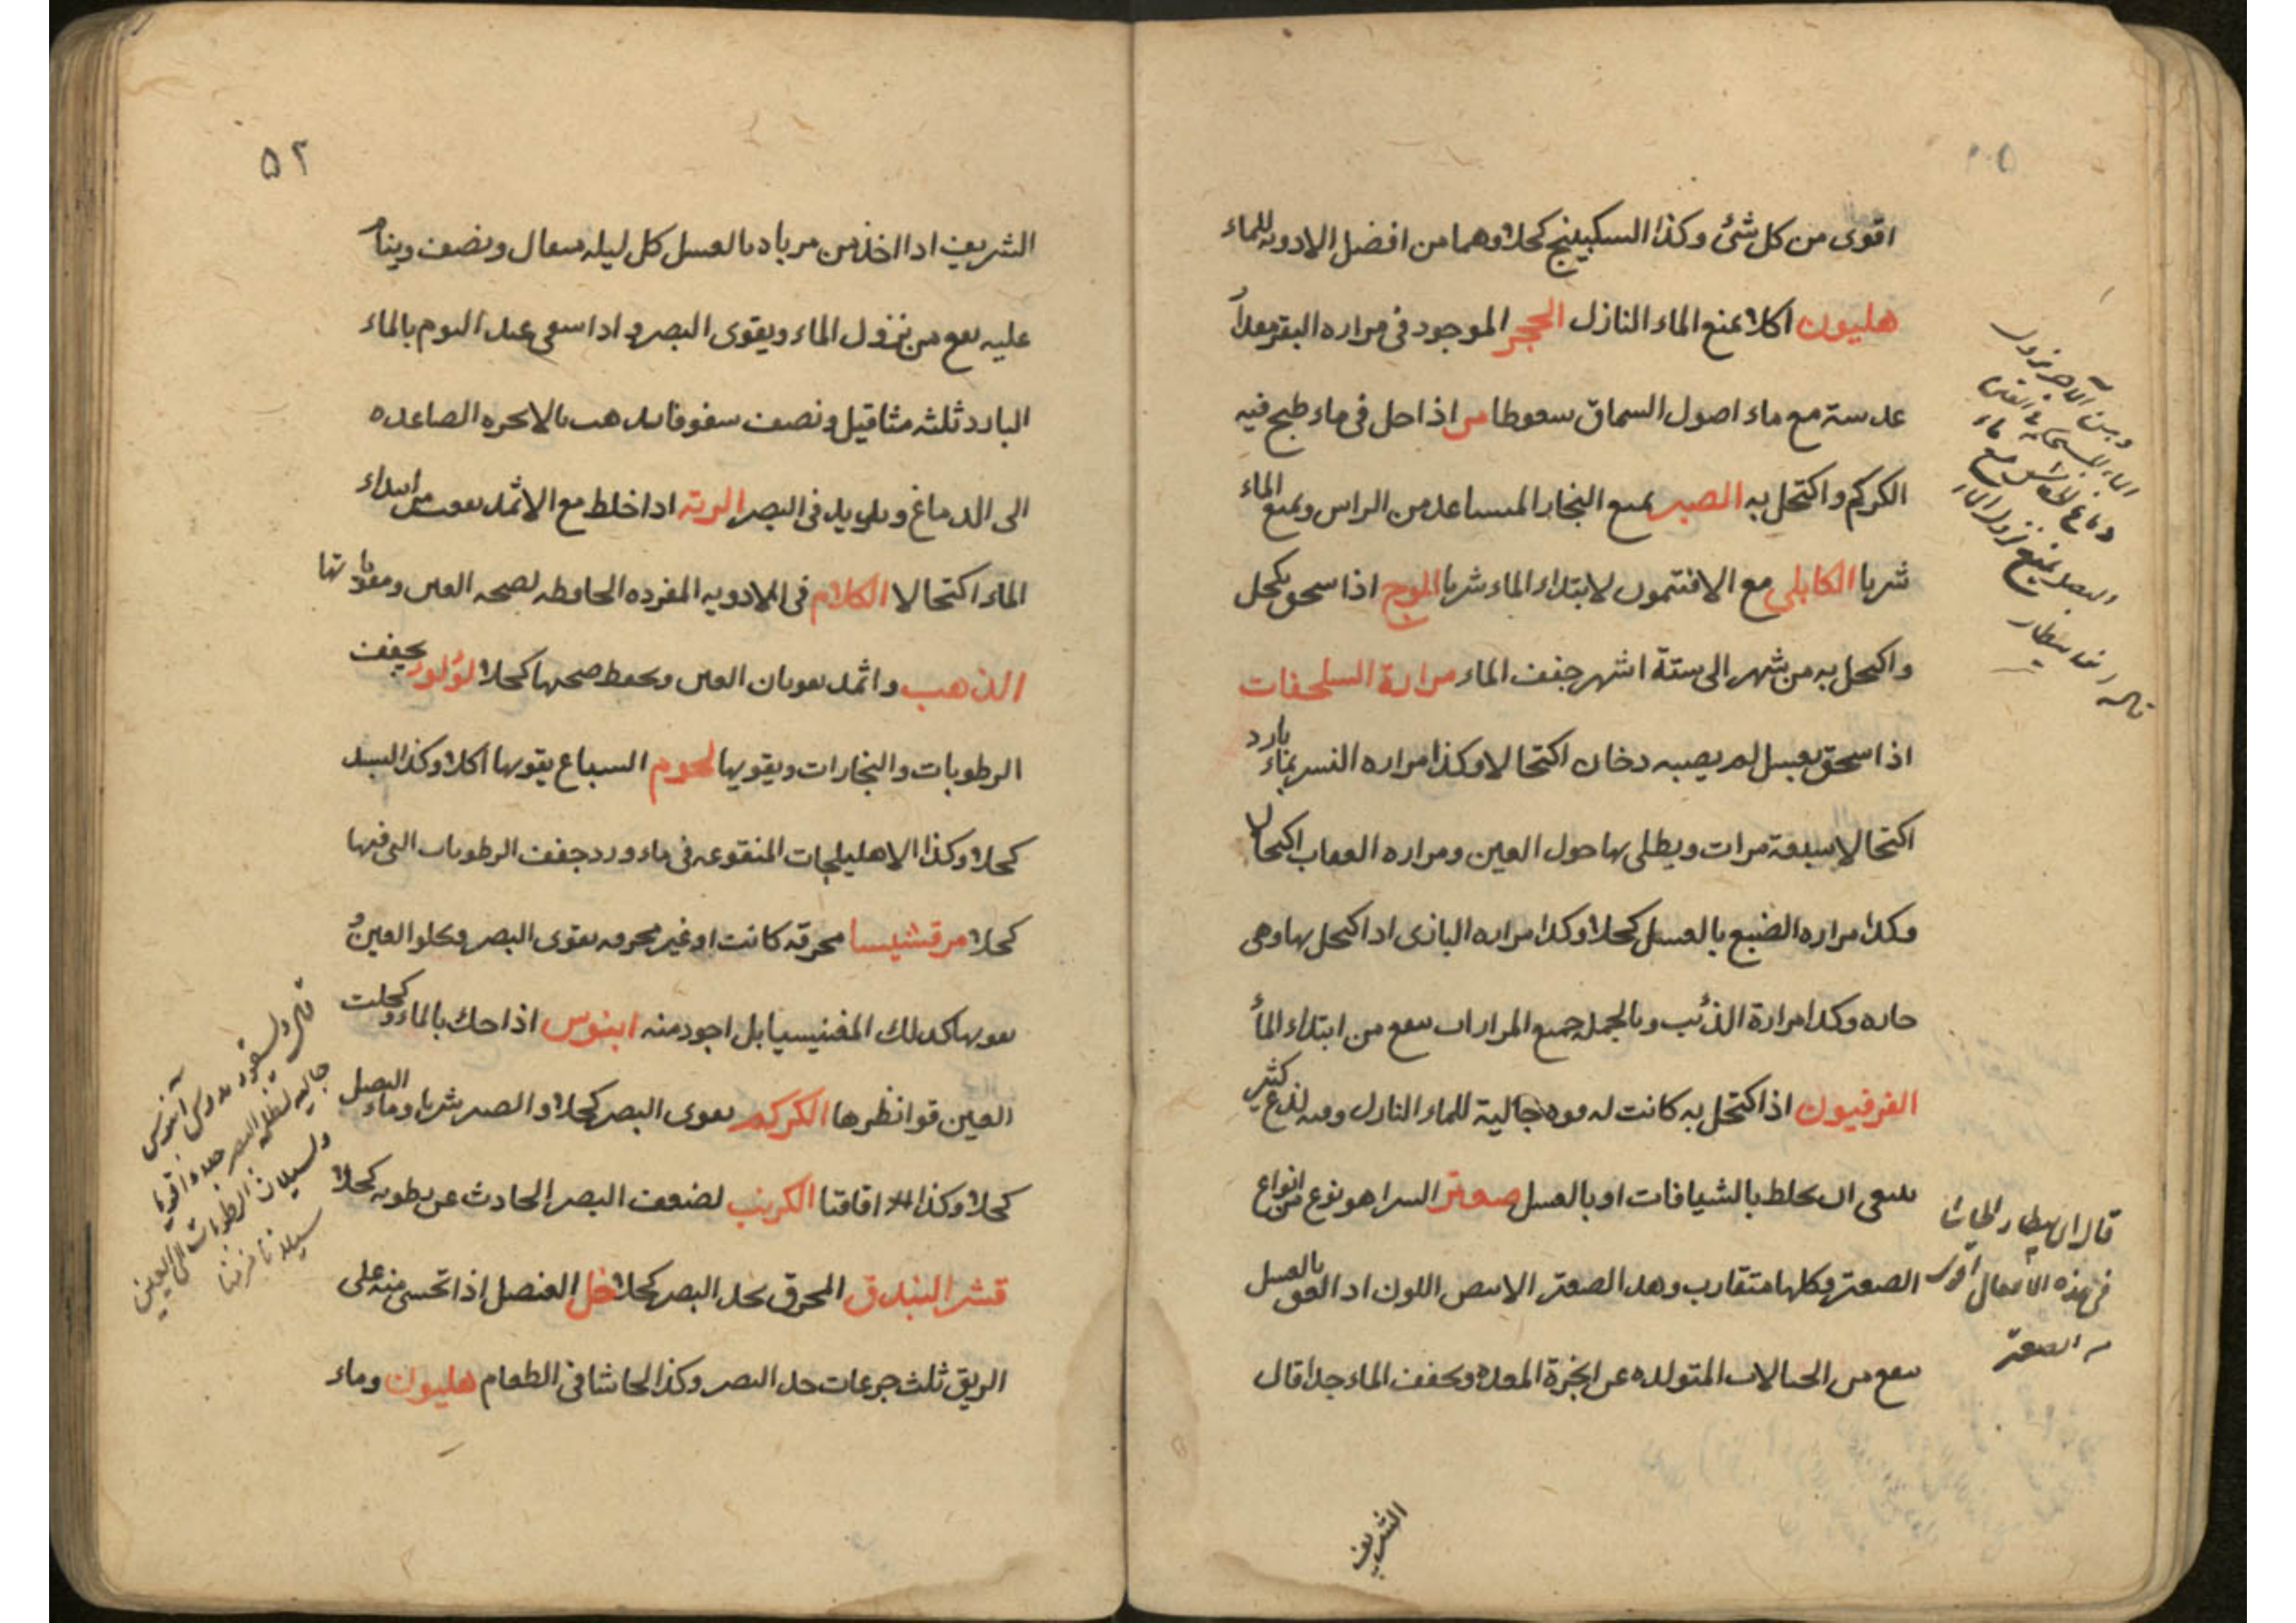 اقوى من كل شئ وكذا السكبينج كحلا وهما من افضل الادويه للماء
هليون اكلا يمنع الماء النازل الحجر الموجود فى مراره البقر مقدار
عدسة مع ماء اصول السماق سعوطا مر اذا حل فى ماء طبخ فيه
الكركم واكتحل به الصبر يمنع البخار المتصاعد من الراس ويمنع الماء
شربا الكابلى مع الافتيمون لابتداء الماء شربا الموج اذا سحق بكحل
واكتحل به من شهر الى ستة اشهر جفف الماء مرارة السلحفات
اذا سحق بعسل لم يصيبه دخان اكتحالا وكذا مراره النسر بماء بارد
اكتحالا سبعة مرات ويطلى بها حول العين ومراره العقاب اكتحالا
وكذا مراره الضبع بالعسل كحلا وكذا مراره البازى اذا اكتحل بها وهى
حاره وكذا مرارة الذئب وبالجمله جميع المرارات ينفع من ابتداء الماء
الفرفيون اذا اكتحل به كانت له قوه جالية للماء النازل وفيه لذع كثير
ينبغى ان يخلط بالشيافات او بالعسل صعتر السرا هو نوع من انواع
الصعتر وكلها متقارب وهذا الصعتر الابيض اللون اذا لعق بالعسل
ينفع من الخيالات المتولده عن ابخرة المعده ويجفف الماء جدا قال
قال ابن بيطار الحاشا
فى هذه الافعال اقوى
من الصعتر
الشريف
٥٢
الشريف اذا اخذ من مرباه بالعسل كل ليله مثقال ونصف وينام
عليه نفع من نزول الماء ويقوى البصر و اذا سقى عند النوم بالماء
البارد ثلثه مثاقيل ونصف سفوفا يذهب بالابخره الصاعده
الى الدماغ ويزيد فى البصر الرته اذا خلط مع الاثمد نفع من ابتداء
الماء اكتحالا الكلام فى الادويه المفرده الحافظه لصحه العين ومقوياتها
الذهب واثمد يقويان العين ويحفظ صحتها كحلا لؤلؤ يجفف
الرطوبات والبخارات ويقويها لحوم السباع يقويها اكلا وكذا السبد
كحلا وكذا الاهليلجات المنقوعه فى ماء ورد جفف الرطوبات التى فيها
كحلا مرقشيسا محرقه كانت او غير محرقه يقوى البصر ويجلو العين و
يقويها كذلك المغنيسيا بل اجود منه ابنوس اذا حك بالماء وكحلت
العين قوا نظرها الكركم يقوى البصر كحلا والصبر شربا وماء البصل
كحلا وكذا اقاقيا الكرنب لضعف البصر الحادث عن رطوبه كحلا
قشر البندق المحرق يحد البصر كحلا خل العنصل اذا تحسى منه على
الريق ثلث جرعات حد البصر وكذا الحاشا فى الطعام هليون وماء